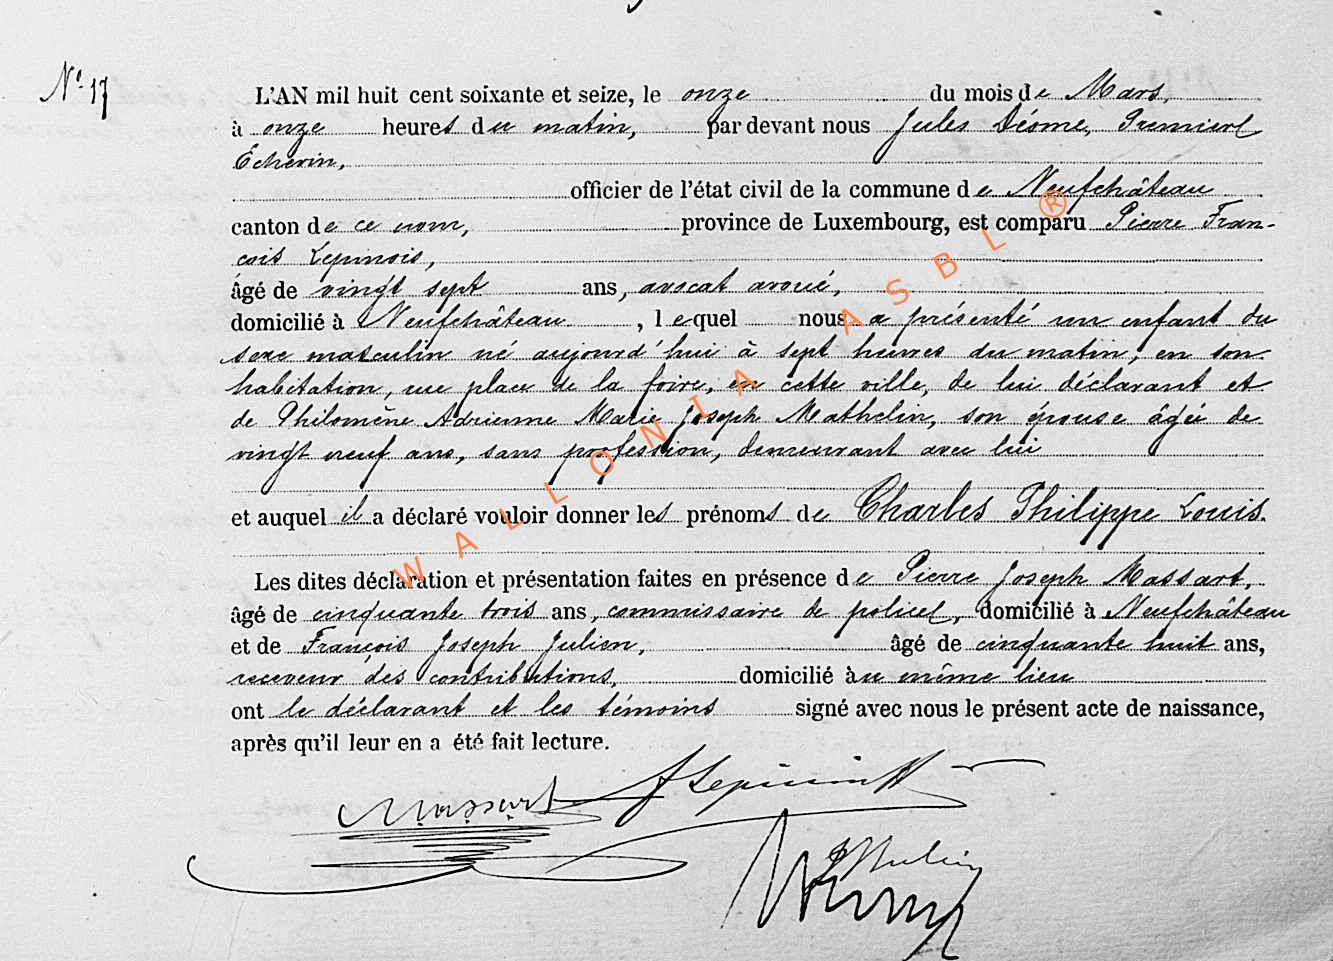 N° 17
L'AN mil huit cent soixante et seize, le onze du mois de Mars,
à onze heures du matin, par devant nous Jules Déome, Premier
Échevin,
officier de l'état civil de la commune de Neufchâteau
canton de ce nom, province de Luxembourg, est comparu Pierre Fran-
çois Lepinois,
âgé de vingt sept ans, avocat avoué,
domicilié à Neufchâteau, lequel nous a présenté un enfant du
sexe masculin né aujourd'hui à sept heures du matin, en son
habitation, place de la foire, en cette ville, de lui déclarant et
de Philomène Adrienne Marie Joseph Mathelin, son épouse âgée de
vingt neuf ans, sans profession, demeurant avec lui
et auquel il a déclaré vouloir donner les prénoms de Charles Philippe Louis.
Les dites déclaration et présentation faites en présence de Pierre Joseph Massart,
âgé de cinquante trois ans, commissaire de police, domicilié à Neufchâteau
et de François Joseph Julien, âgé de cinquante huit ans,
receveur des contributions, domicilié au même lieu
ont le déclarant et les témoins signé avec nous le présent acte de naissance,
après qu'il leur en a été fait lecture.
Massart
WALLONIA ASBL ®